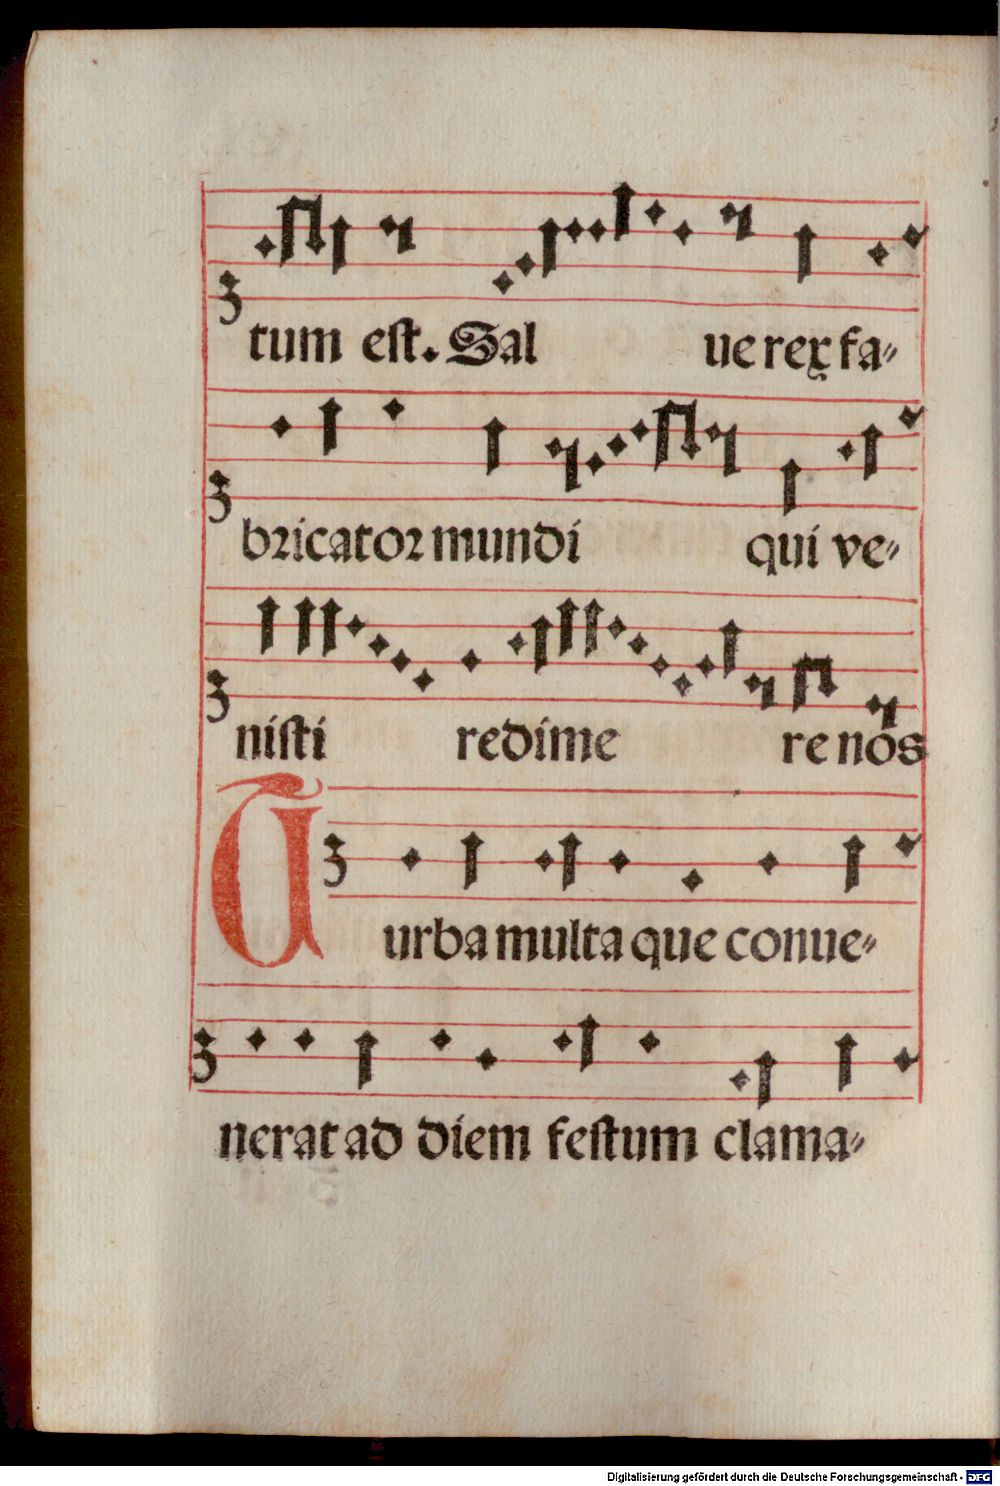 tum est. Sal ue rex fa-
bricator mundi qui ve-
nisti redime re nos
Turba multa que conue-
nerat ad diem festum clama-
Digitalisierung gefördert durch die Deutsche Forschungsgemeinschaft - DFG